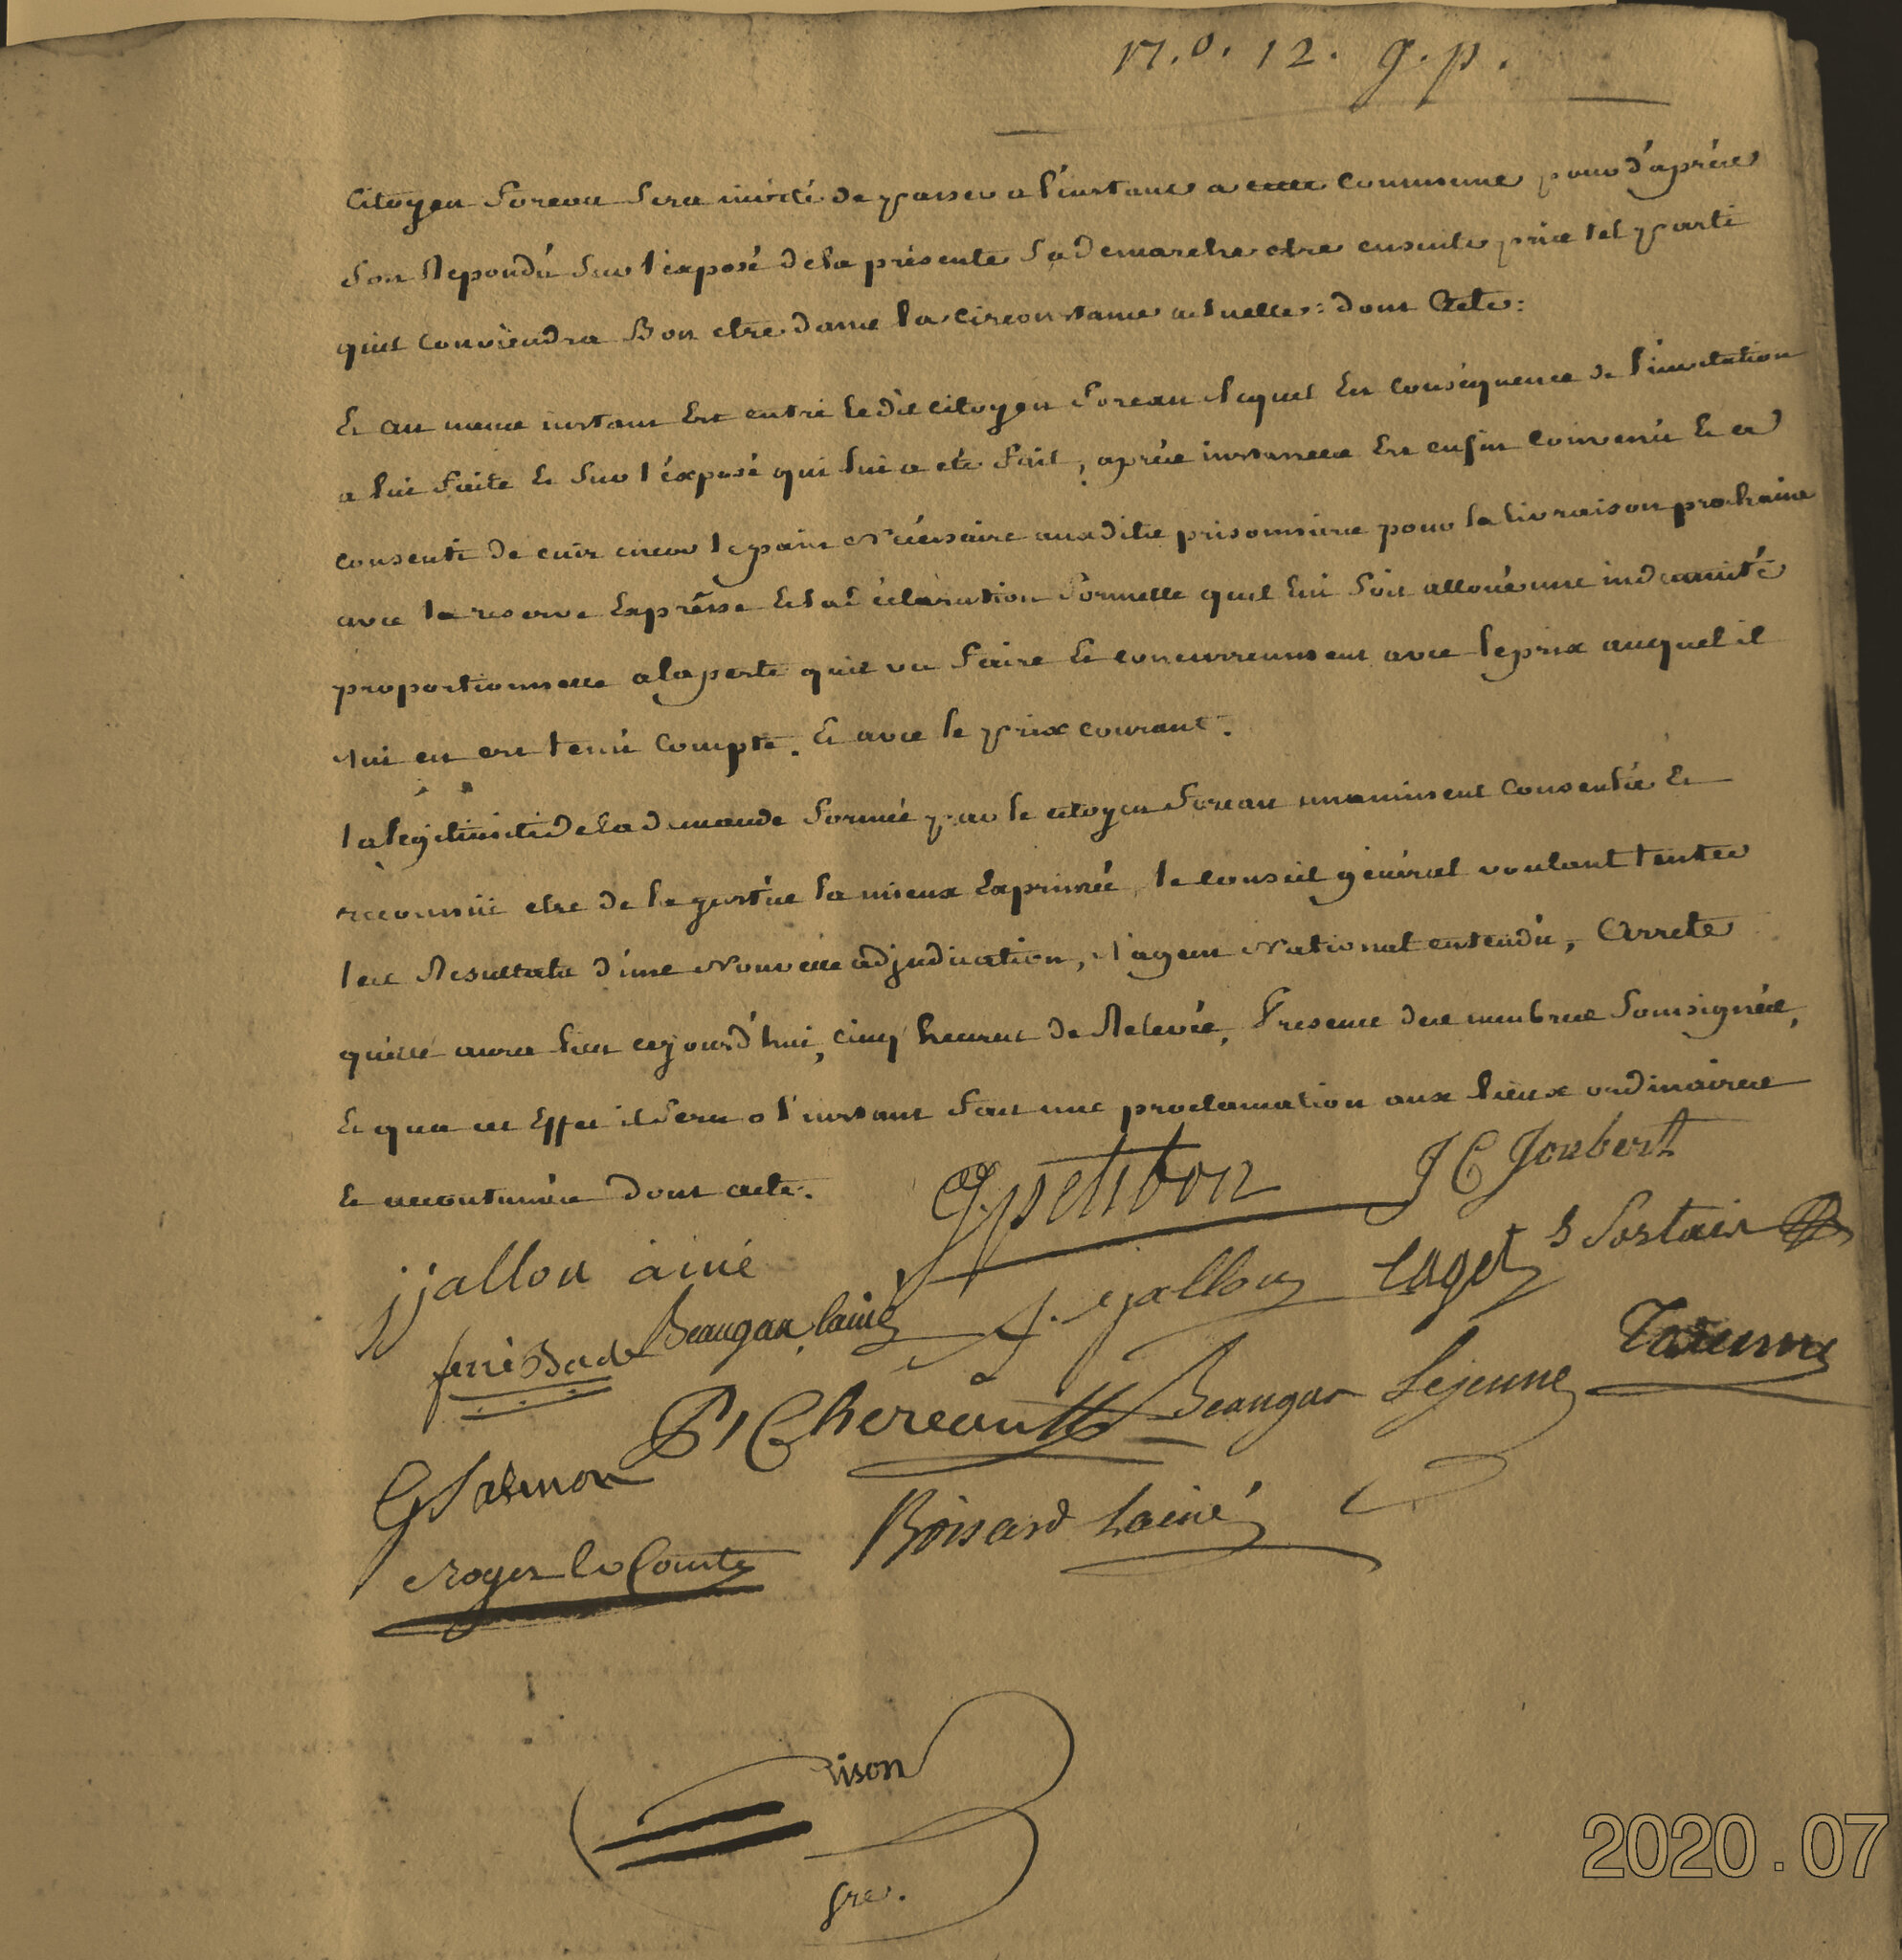 n.o. 12. g.p.
Citoyen Foreau sera invité de passer a l'instant a cette commune pour d'après
son Repondû sur l'exposé de la présente sa demarche etre ensuite pris tel parti
quil conviendra Bon etre dans la circonstance actuelle : dont Acte :
Et au meme instant Est entré le dit citoyen Foreau lequel En conséquence de l'invitation
a lui faite Et sur l'éxposé qui lui a eté fait, après instances Est enfin convenû Et a
consenti de cuir encor le pain Nécéssaire auxdits prisonniers pour la livraison prochaine
avec la reserve Exprêsse Et la déclaration formelle quil lui soit alloué une indemnité
proportionnelle a la perte quil va faire Et concurremment avec le prix auquel il
lui en est tenû compte. Et avec le prix courant.
la légitimité de la demande formée par le citoyen Foreau unanimement consentie Et
reconnuë etre de la justice la mieux Exprimée, le conseil général voulant tenter
les Resultats d'une Nouvelle adjudication, l'agent National entendû, Arrete
quelle aura lieu cejourd'hui, cinq heures de Relevée, Presence des membres soussignés,
Et qua cet Effet il sera a l'instant fait une proclamation aux lieux ordinaires
Et accoutumés dont acte.
G petitbon J C Joubert
jjallou ainé
Beaugar, lainé J. jallou Laget S Sortais
P C hereault Beaugar Lejeune
G Salmon
Boisard Lainé
Roger le Comte
ison
gre.
2020.07